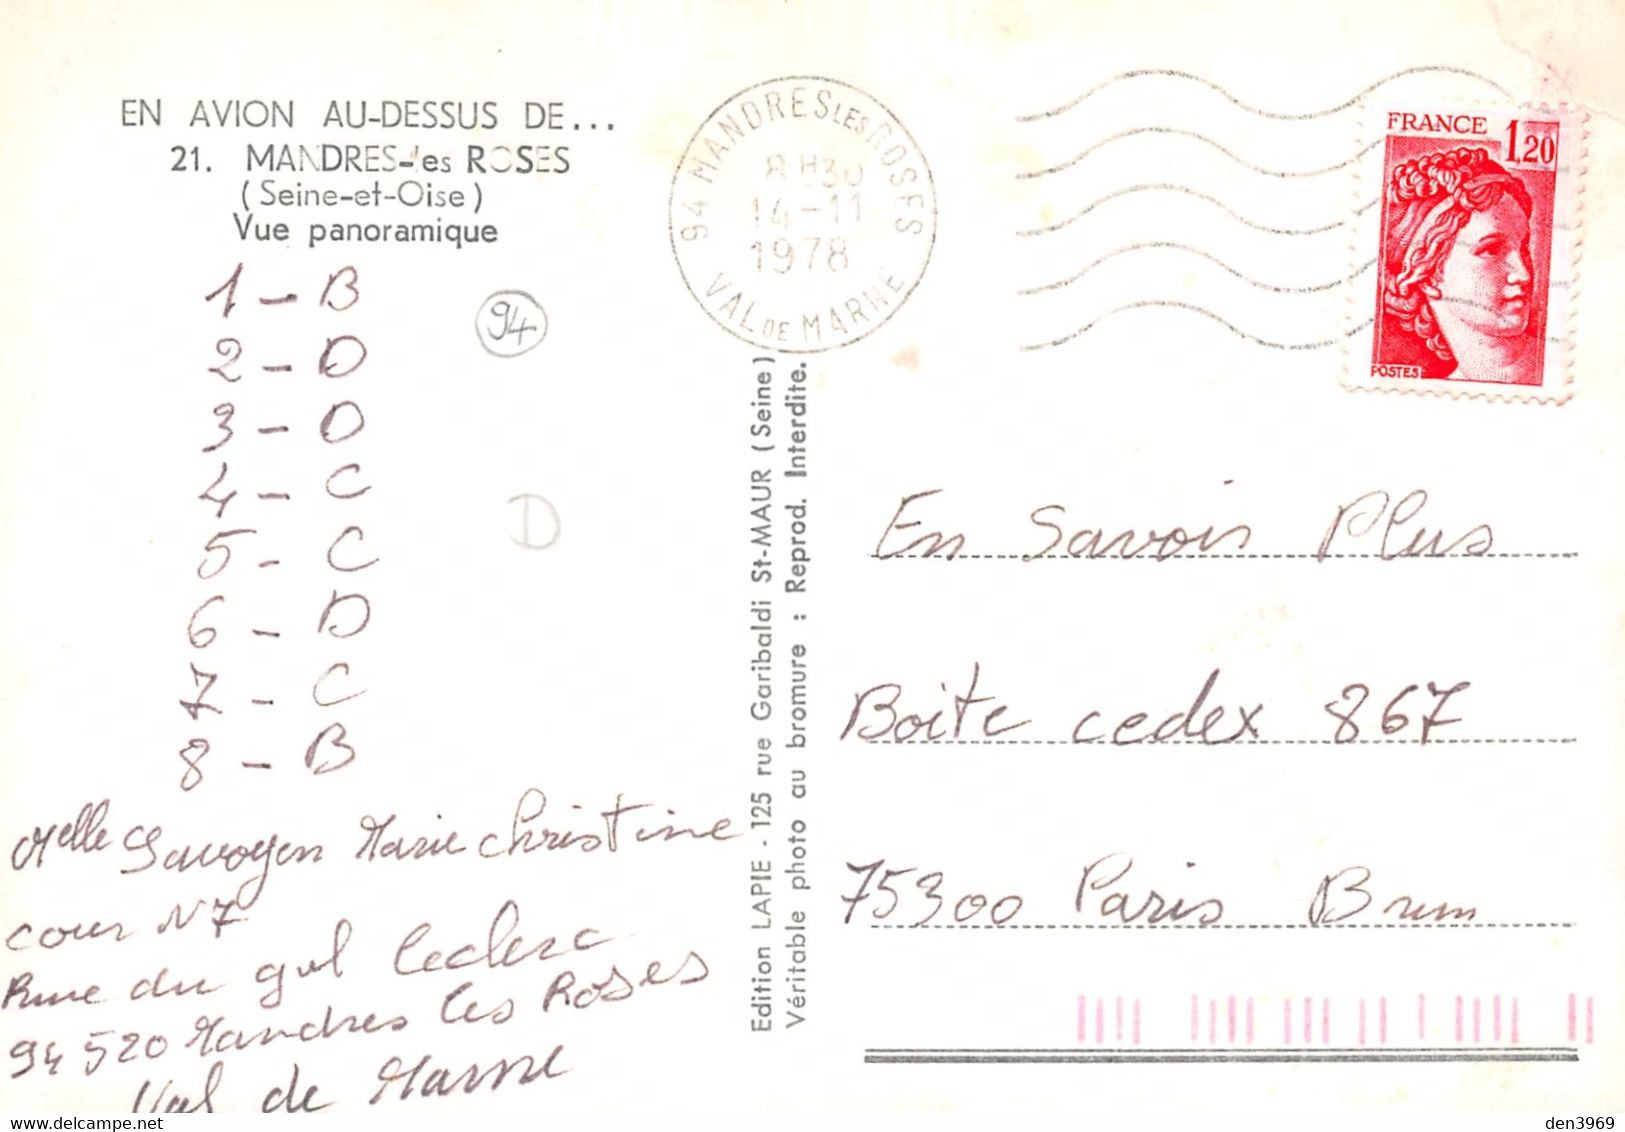 EN AVION AU-DESSUS DE...
21. MANDRES-les ROSES
(Seine-et-Oise)
Vue panoramique
1 - B
2 - D
3 - D
4 - C
5 - C
6 - D
7 - C
8 - B
94
D
Melle Savoyen Marie Christine
cour N7
Rue du gul Leclerc
94520 Mandres les Roses
Val de Marne
Edition LAPIE - 125 rue Garibaldi St-MAUR (Seine)
Véritable photo au bromure : Reprod. Interdite.
94 MANDRES LES ROSES
8 H30
14-11
1978
VAL DE MARNE
FRANCE 1,20
POSTES
En Savoir Plus
Boite cedex 867
75300 Paris Brun
den3969